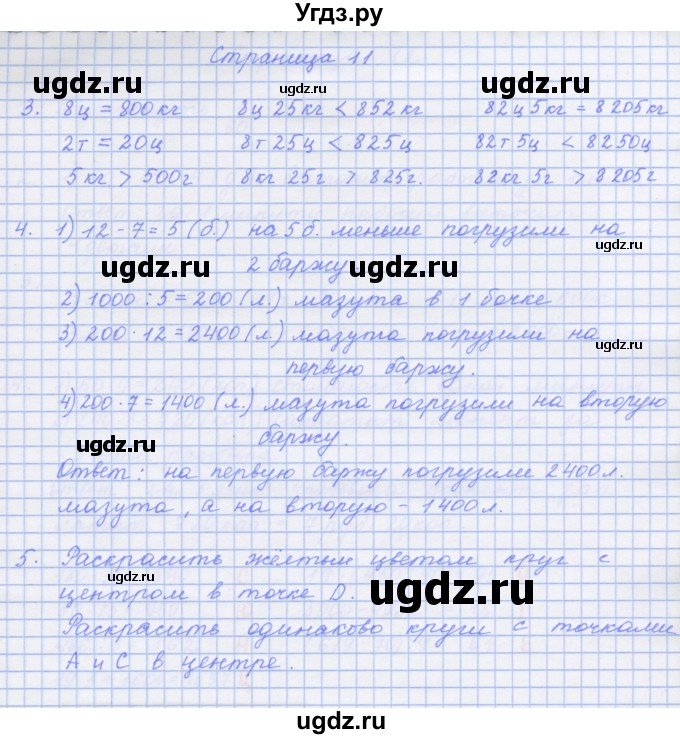 Угдз.ру
Страница 11
ugdz.ru
ugdz.ru ugdz.ru
3. 8ц = 800кг 8ц 25кг < 852кг 82ц 5кг = 8205кг
2т = 20ц 8т 25ц < 825ц 82т 5ц < 8250ц
5кг > 500г 8кг 25г > 825г. 82кг 5г > 8205г
4. 1) 12 - 7 = 5 (б.) на 5б. меньше погрузили на
ugdz.ru
2 баржу
ugdz.ru ugdz.ru
2) 1000 : 5 = 200 (л.) мазута в 1 бочке
3) 200 · 12 = 2400 (л.) мазута погрузили на
ugdz.ru
первую баржу.
4) 200 · 7 = 1400 (л.) мазута погрузили на вторую
баржу.
ugdz.ru
Ответ: на первую баржу погрузили 2400л.
мазута, а на вторую - 1400л.
5. Раскрасить жёлтым цветом круг с
ugdz.ru
центром в точке D.
ugdz.ru
Раскрасить одинаково круги с точками
А и С в центре.
ugdz.ru
ugdz.ru